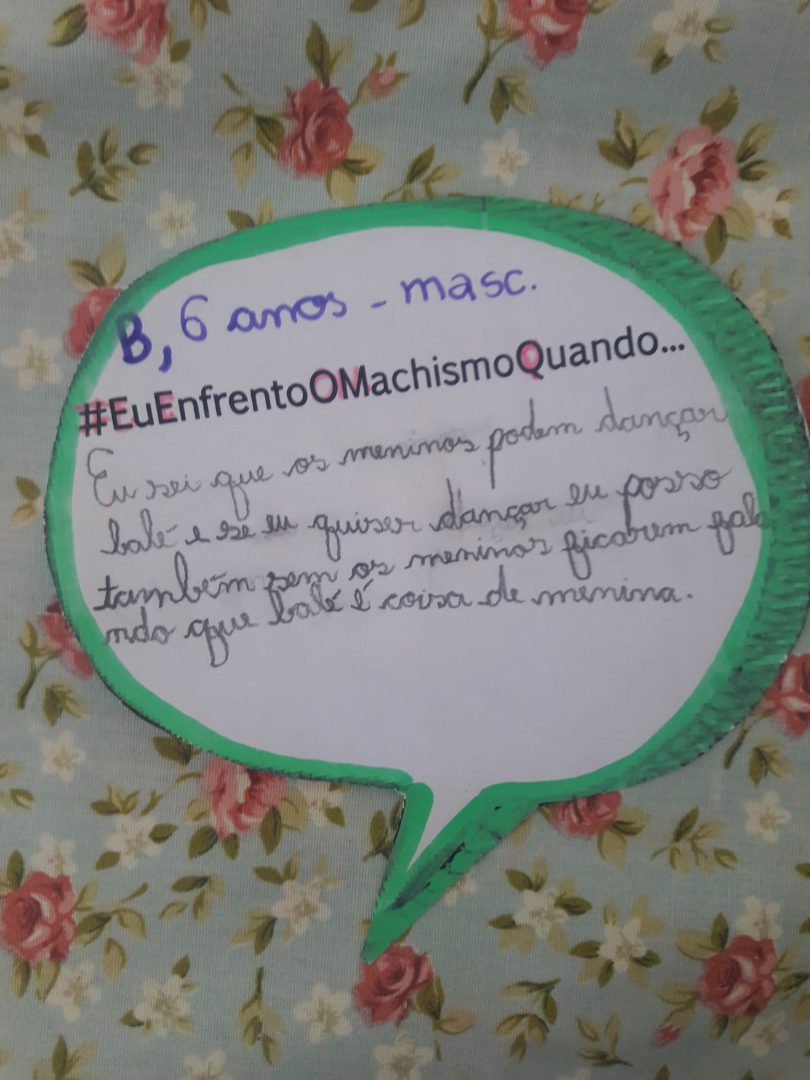 B, 6 anos - masc.
#EuEnfrentoOMachismoQuando...
Eu sei que os meninos podem dançar
balé e se eu quiser dançar eu posso
também sem os meninos ficarem fala
ndo que balé é coisa de menina.